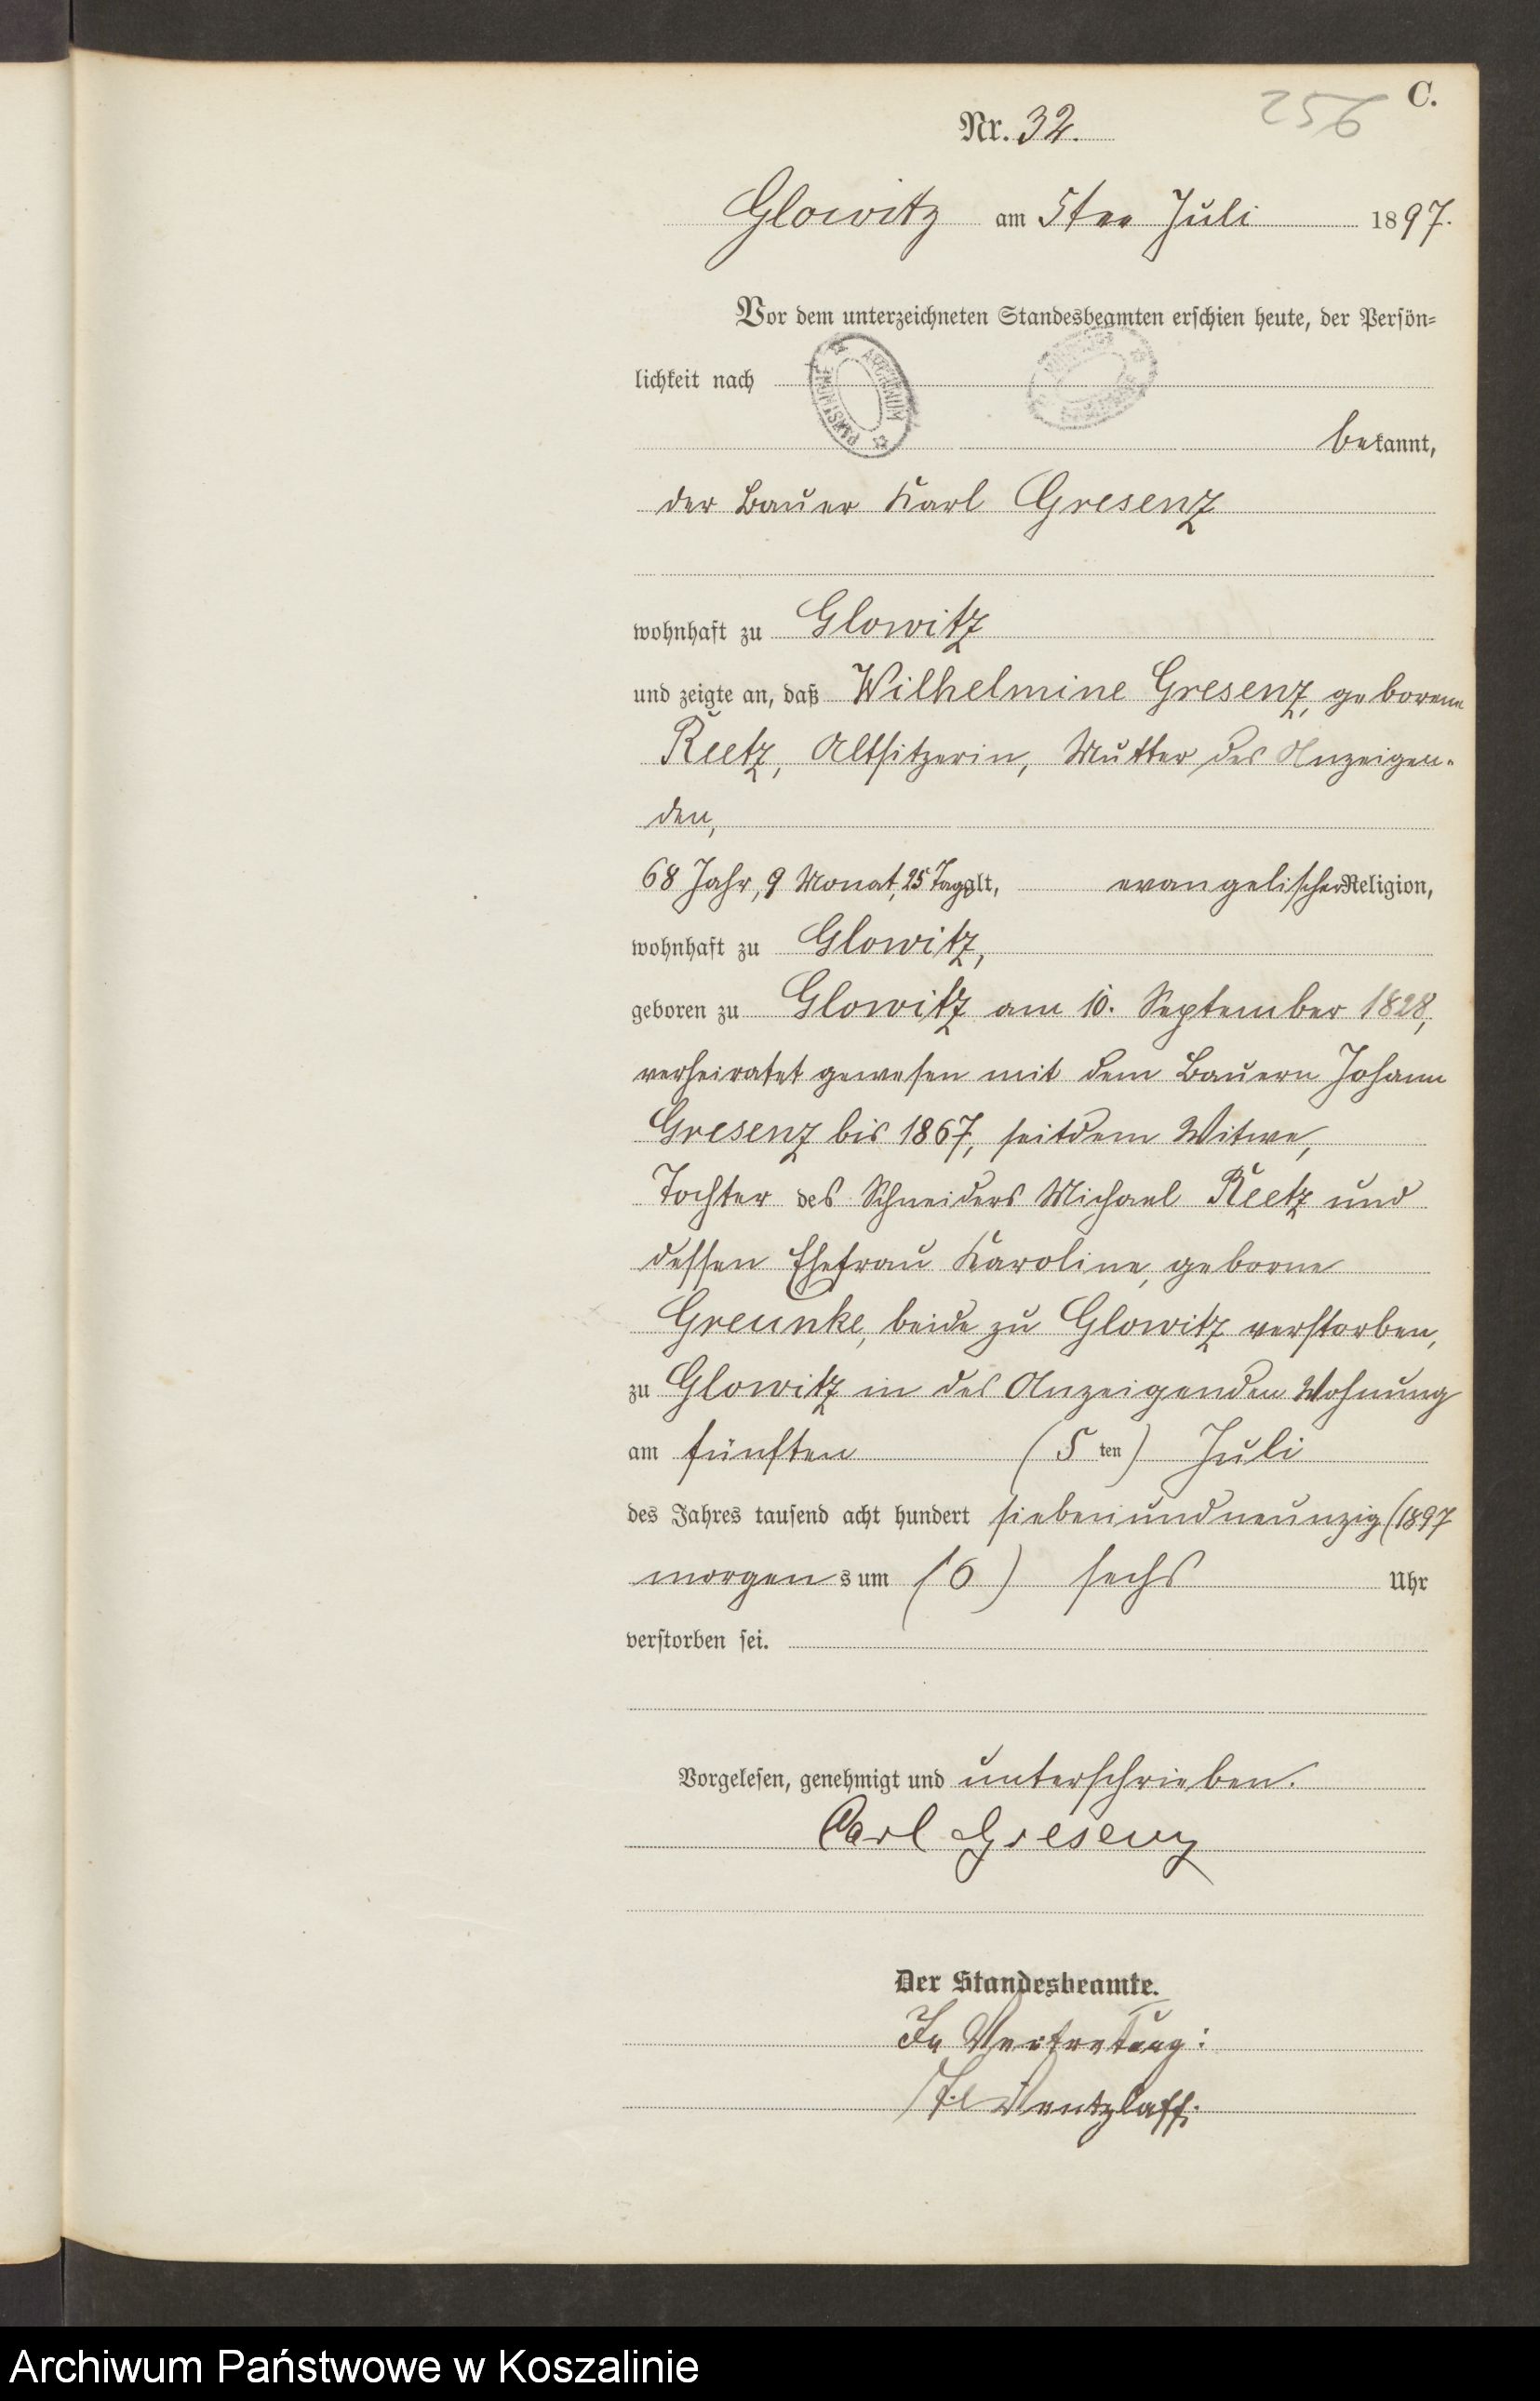 C.
256
Nr. 32.
Glowitz am 5ten Juli 1897.
Vor dem unterzeichneten Standesbeamten erschien heute, der Persön-
lichkeit nach
bekannt,
der Bauer Karl Gresenz
wohnhaft zu Glowitz
und zeigte an, daß Wilhelmine Gresenz, geborene
Reetz, Altsitzerin, Mutter des Anzeigen-
den,
68 Jahr, 9 Monat, 25 Tag alt, evangelischer Religion,
wohnhaft zu Glowitz,
geboren zu Glowitz am 10. September 1828,
verheiratet gewesen mit dem Bauern Johann
Gresenz bis 1867, seitdem Witwe,
Tochter des Schneiders Michael Reetz und
dessen Ehefrau Karoline, geborne
Greunke, beide zu Glowitz verstorben,
zu Glowitz in des Anzeigenden Wohnung
am fünften (5 ten) Juli
des Jahres tausend acht hundert siebenundneunzig (1897
morgens um (6) sechs Uhr
verstorben sei.
Vorgelesen, genehmigt und unterschrieben.
Carl Gresenz
Der Standesbeamte.
In Vertretung:
Wentzlaff.
Archiwum Państwowe w Koszalinie